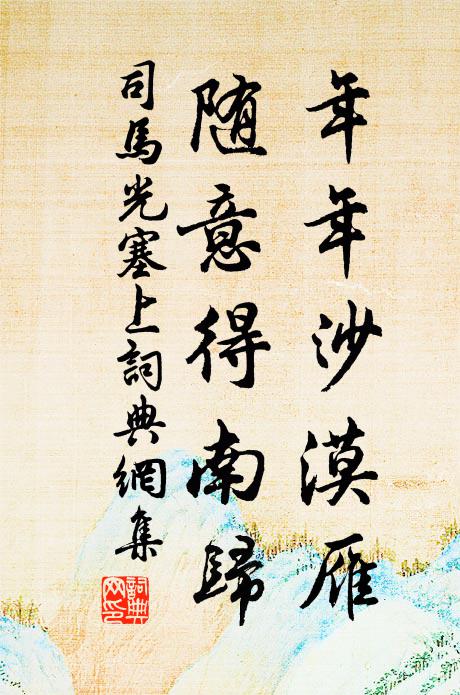 年年沙漠雁
随意得南歸
司馬光塞上詞典網集
詞典网印